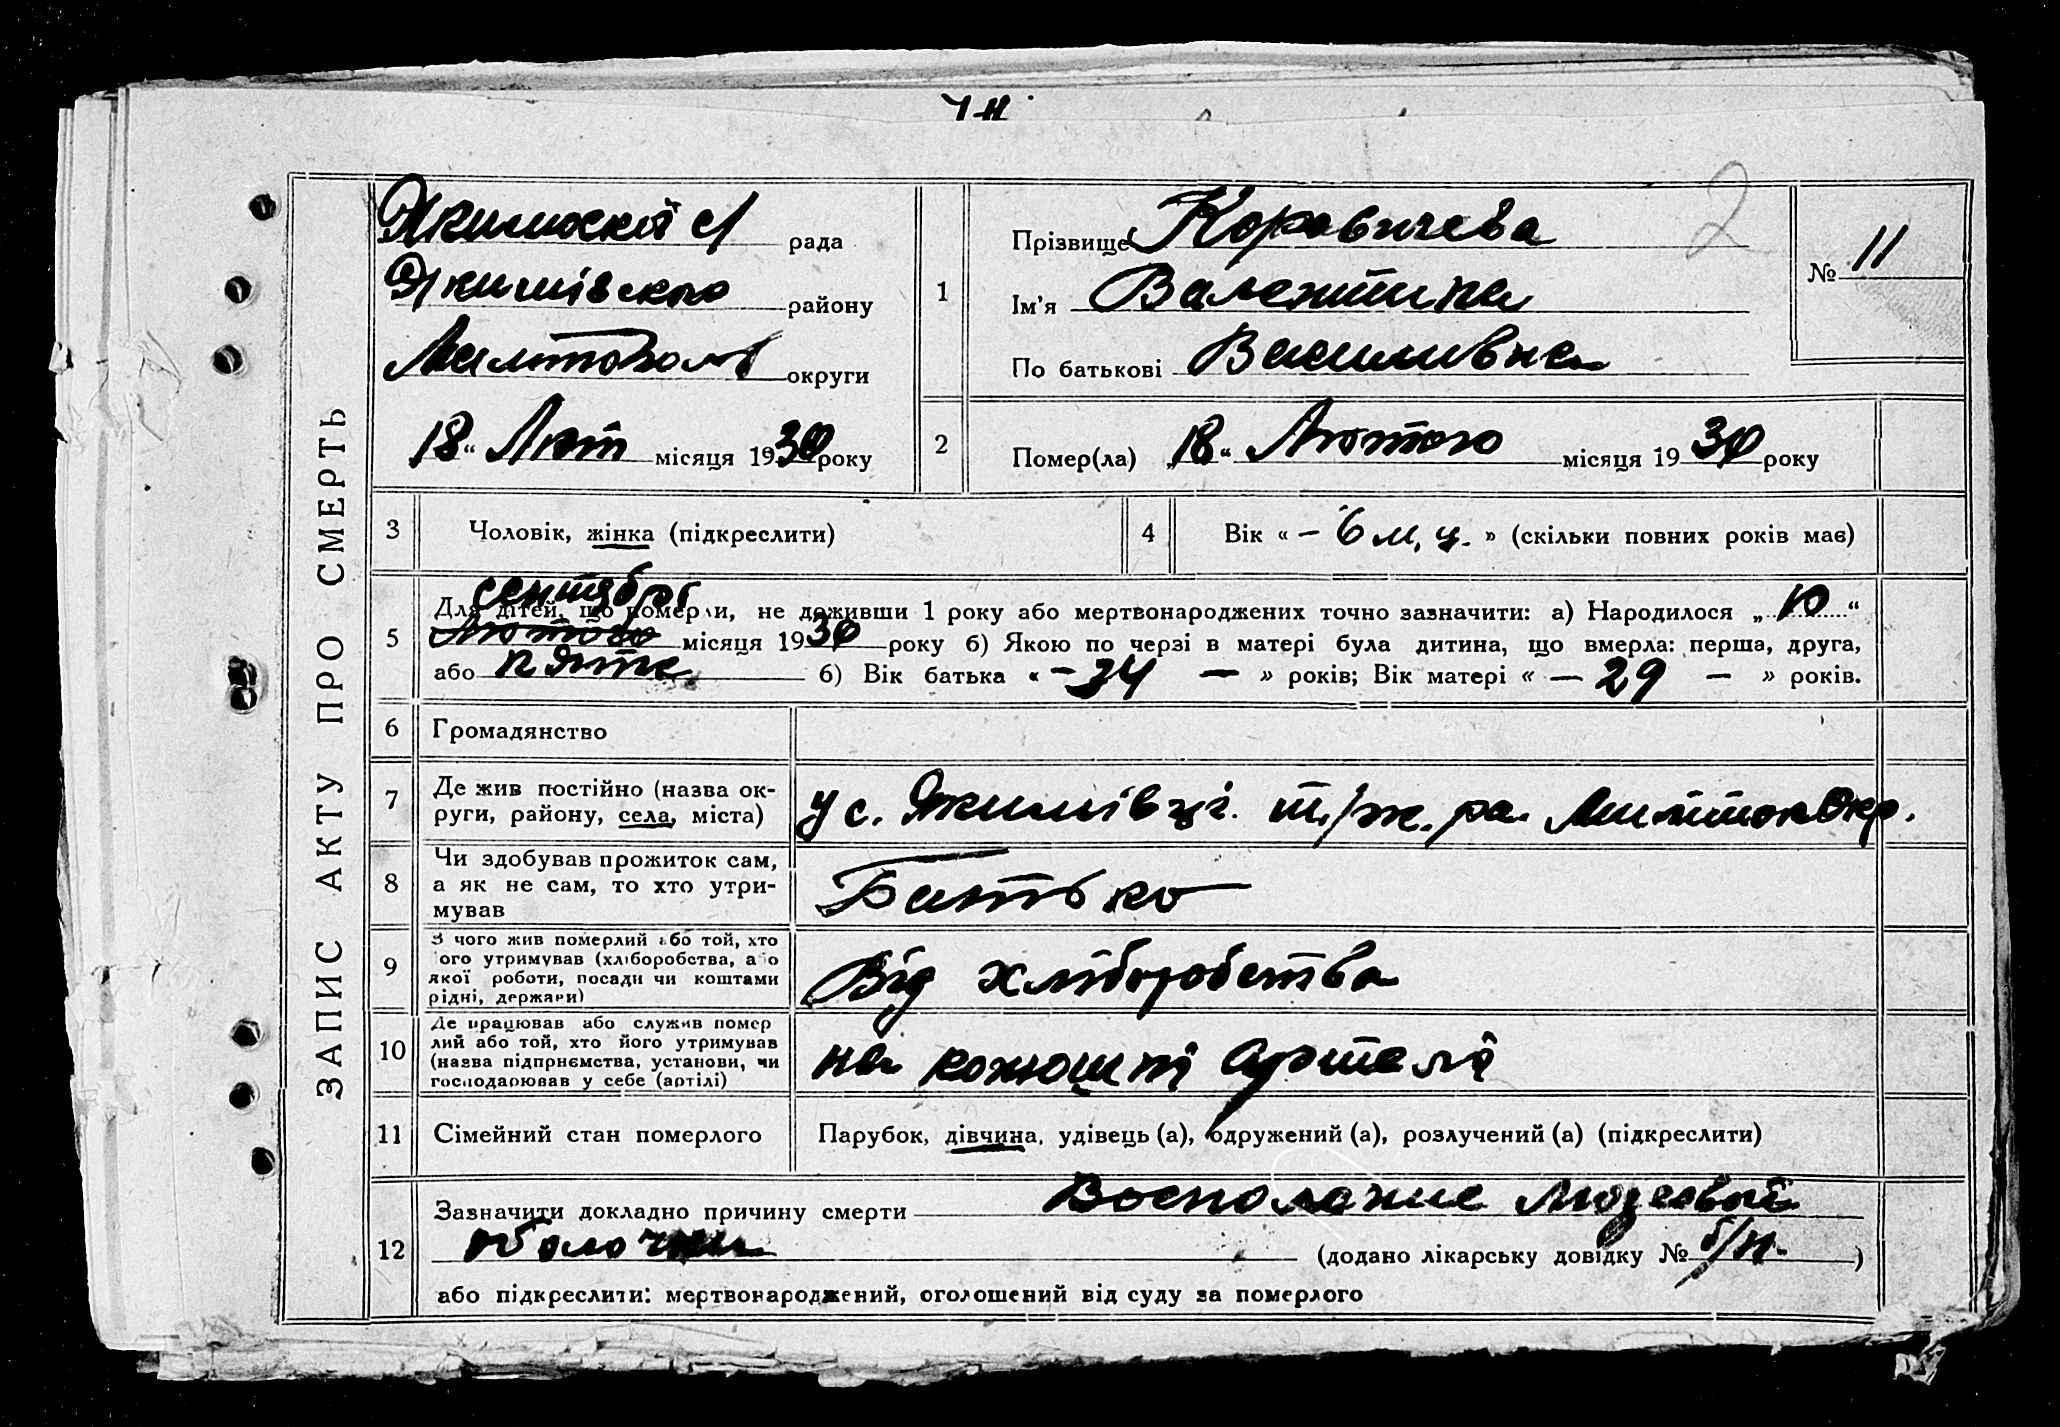 чн
2
ЗАПИС АКТУ ПРО СМЕРТЬ
рада
Якимівського району
округи
18 “ Лют місяця 1930 року
1
Прізвище Коровичева
Ім'я Валентина
По батькові Василивна
№ 11
2
Помер(ла) „18“ Лютого місяця 1930 року
3 Чоловік, жінка (підкреслити)
4 Вік « – 6 м.ц. » (скільки повних років має)
сентября
Для дітей, що померли, не доживши 1 року або мертвонароджених точно зазначити: а) Народилося „ 10 “
5 Лютого місяця 1930 року б) Якою по черзі в матері була дитина, що вмерла: перша, друга,
або пята б) Вік батька « – 34 – » років; Вік матері « – 29 – » років.
6 Громадянство
7 Де жив постійно (назва округи, району, села, міста)
у с. Якимівці
8 Чи здобував прожиток сам,
а як не сам, то хто утри-
мував
Батько
9 З чого жив померлий або той, хто
ого утримував (хліборобства, а о
якої роботи, посади чи коштами
рідні, держави)
Від хліборобства
10 Де працював або служив помер
лий або той, хто його утримував
(назва підприємства, установи, чи
господарював у себе (артілі)
на конюшні артелі
11 Сімейний стан померлого
Парубок, дівчина, удівець (а), одружений (а), розлучений (а) (підкреслити)
12 Зазначити докладно причину смерти Восполение
оболочки (додано лікарську довідку № б/н. )
або підкреслити: мертвонароджений, оголошений від суду за померлого